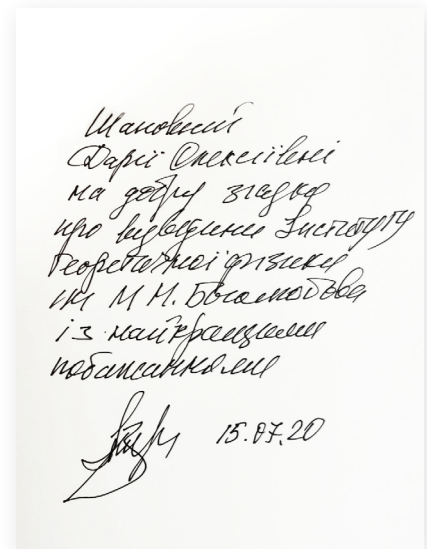 Шановній
Дарії Олексіївні
на добру згадку
про відвідини Інституту
теоретичної фізики
ім М.М. Боголюбова
із найкращими
побажаннями
15.07.20